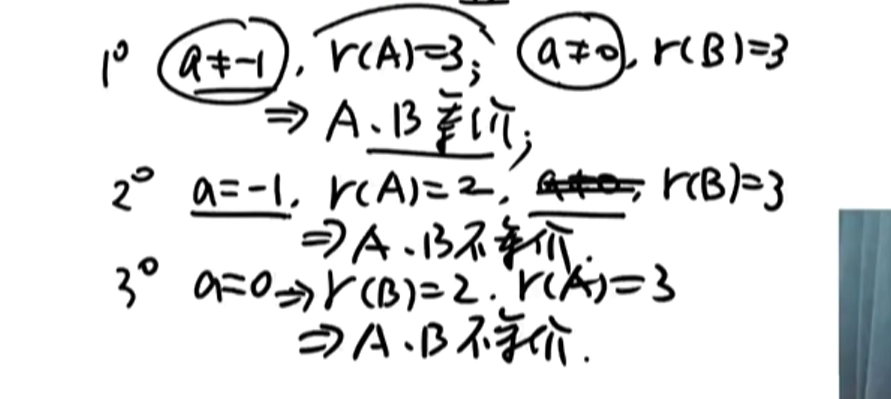 1° a≠-1, r(A)=3; a≠0, r(B)=3
⇒ A、B等价;
2° a=-1, r(A)=2, r(B)=3
⇒ A、B不等价.
3° a=0⇒r(B)=2. r(A)=3
⇒ A、B不等价.